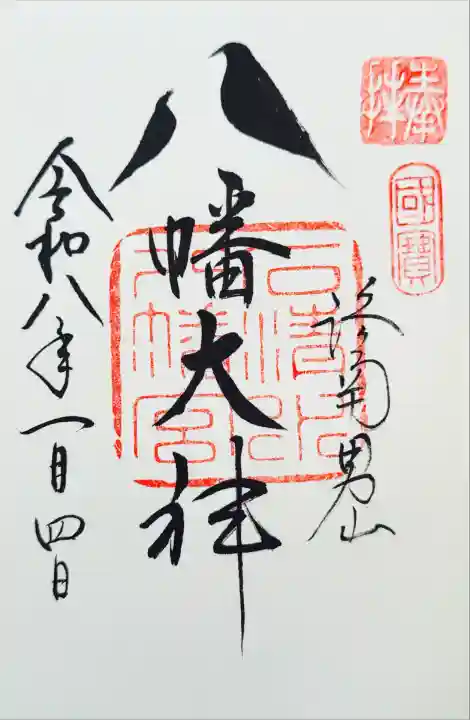 奉拝
國寶
洛南男山
八幡大神
石清水八幡宮
令和八年一月四日